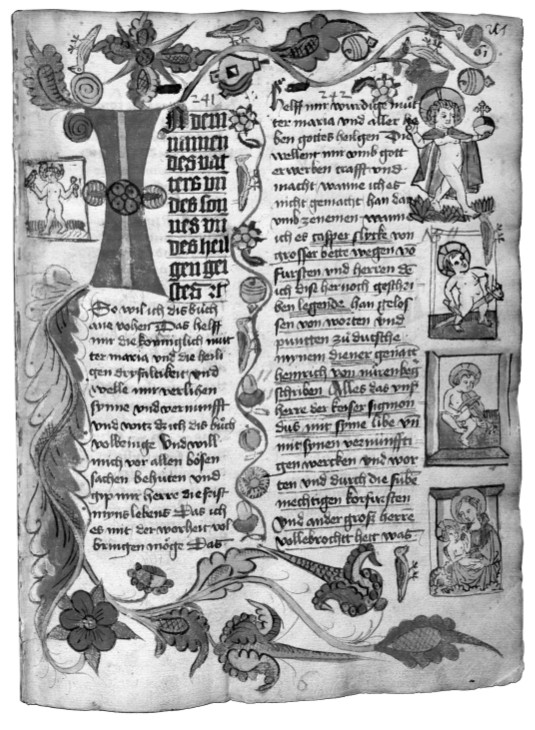 241
IN dem
namen
des vat
ters vn
des son
nes vn
des heil
gen gei
stes
So wil ich dis buch
ane vohen Das helff
mir die koniglich mut
ter maria vnd die heili
gen dryfaltikeit vnd
welle mir verlihen
synne vnd vernunfft
vnd witz dz ich dis buch
volbringe Vnd will
mich vor allen bösen
sachen behuten vnd
gip mir herre die frist
myns lebens Das ich
es mit der worheit vol
bringen möge Das
242
helff mir wurdige mut
ter maria vnd aller
ben gottes heiligen Die
wellent mir vmb gott
erwerben crafft vnd
macht wanne ich es
nicht gemacht han dar
vmb zenemen wanne
ich es
grosser bette wegen vo
fursten vnd herren de
ich dise hernoch geschri
ben legende han gelos
sen von worten vnd
puncten zu dutsche
mynem diener genant
heinrich von nurenberg
schriben Alles das vnser
herre der keiser sigmon
dus mit sime libe vn
mit synen vernunffti
gen wercken vnd wor
ten vnd durch die sube
mechtigen korfursten
vnd ander gross herre
vollebrocht hett was